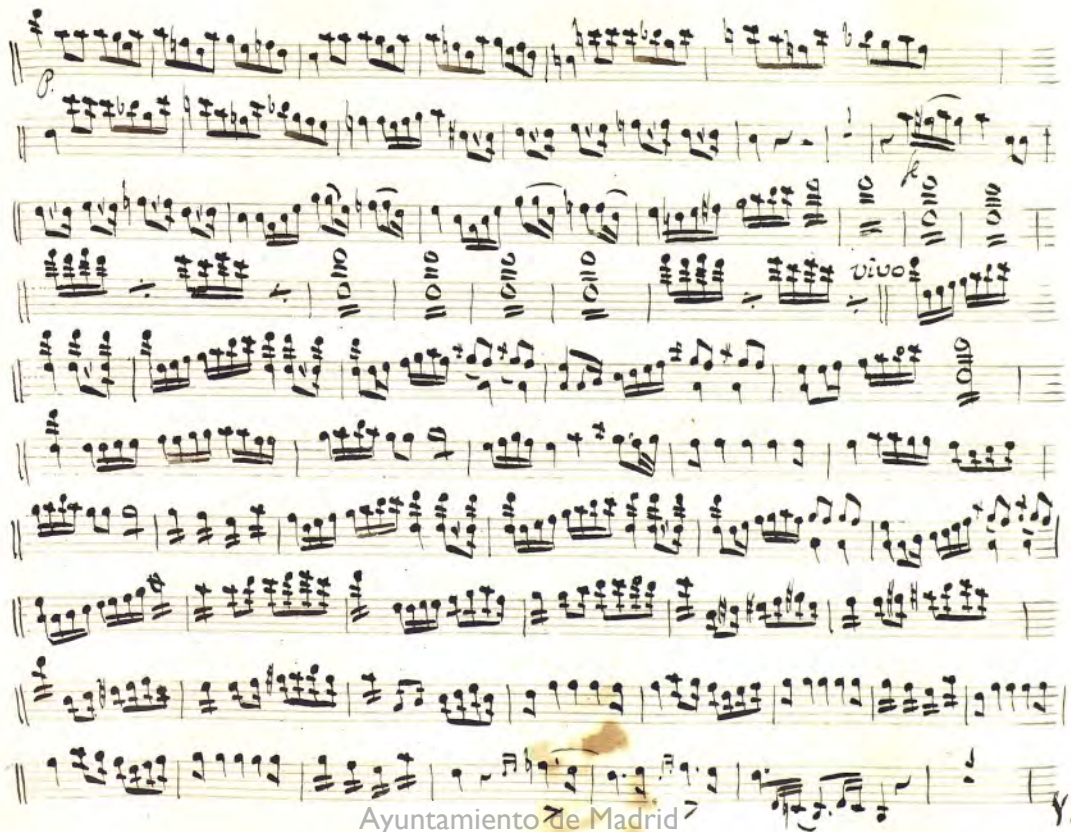 P.
fe
vivo
V.
Ayuntamiento de Madrid